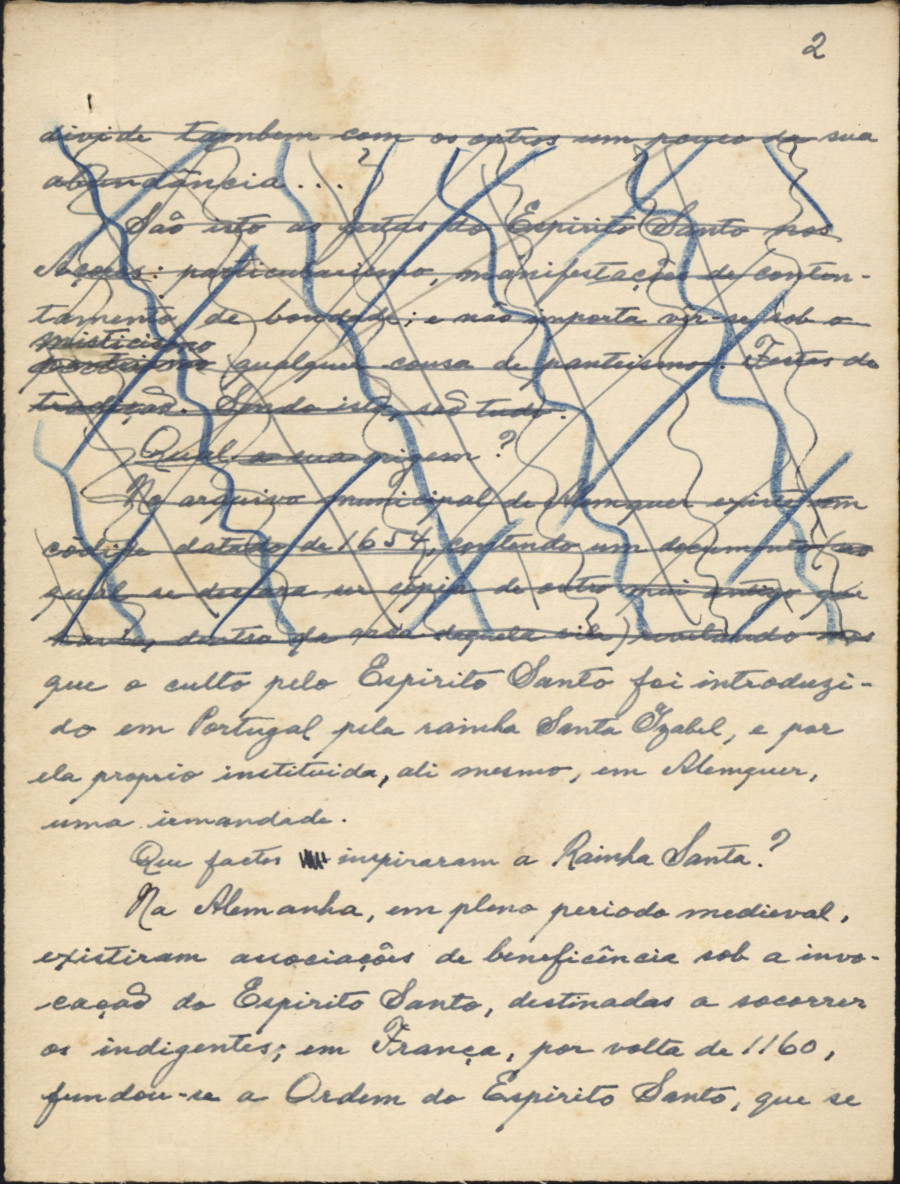 2
divide tambem com os outros um pouco da sua
abundância...
São isto as festas do Espirito Santo nos
Açores: particularismo, manifestações de conten-
tamento, de bondade; e não importa vêr-se sob o
misticismo
qualquer cousa de panteismo. Festas de
tradição. Sendo isto, são tudo.
Qual a sua origem?
No arquivo municipal de Alemquer existe um
códice datado de 1654, contendo um documento (no
qual se declara ser cópia de outro mui antigo que
havia, dentro da arca daquela vila) revelando nos
que o culto pelo Espirito Santo foi introduzi-
do em Portugal pela rainha Santa Izabel, e por
ela proprio instituida, ali mesmo, em Alemquer,
uma irmandade.
Que factos inspiraram a Rainha Santa?
Na Alemanha, em pleno periodo medieval,
existiram associações de beneficência sob a invo-
cação do Espirito Santo, destinadas a socorrer
os indigentes; em França, por volta de 1160,
fundou-se a Ordem do Espirito Santo, que se